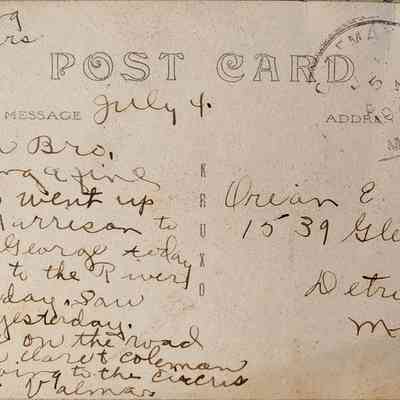 9
rs
POST CARD
MESSAGE July 4.
ADDR
Bro.
went up
Harrison to
George today
to the River
day. Saw
yesterday.
on the road
claret Coleman
oing to the Circus
Valma.
KRUXO
Orian E.
1539 Gle
Detri
M